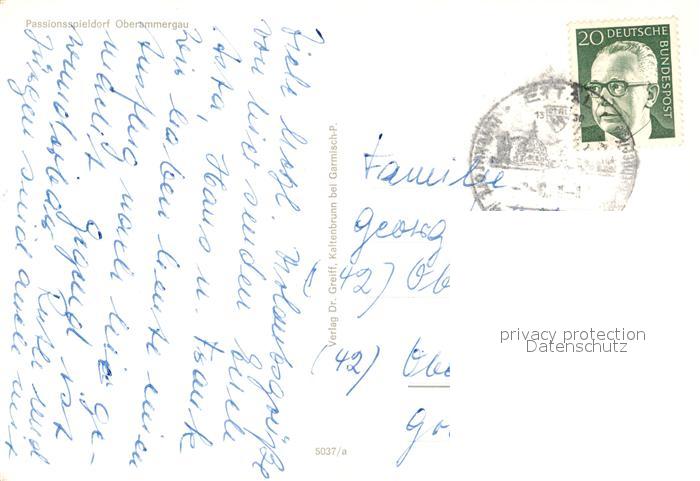 Passionsspieldorf Oberammergau
Viele herzl. Urlaubsgrüße
von hier senden Euch
Hans u. Frank
Wir haben heute einen
Ausflug nach hier ge-
macht. Gegend ist
wunderbar. Rute und
Jürgen sind auch mit
Verlag Dr. Greiff, Kaltenbrunn bei Garmisch-P.
5037/a
20 DEUTSCHE
BUNDESPOST
ETTAL
Familie
Georg
(42) Ob
(42) Obe
privacy protection
Datenschutz